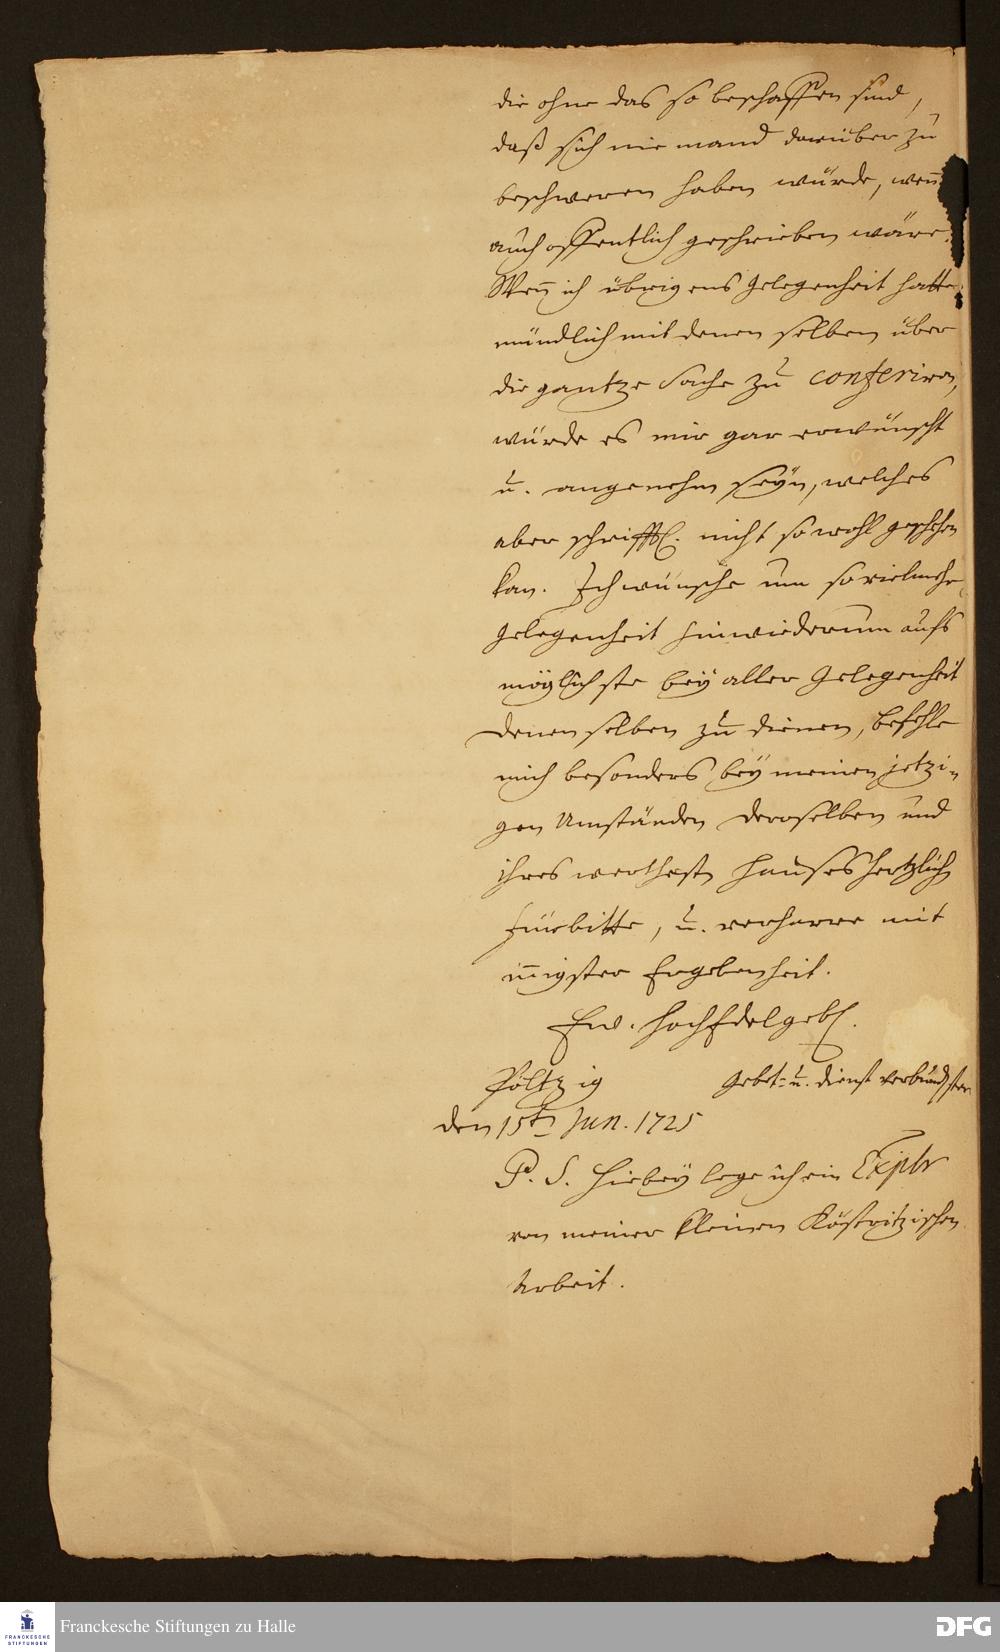 die ohne das so beschaffen sind,
daß sich niemand darüber zu
beschweren haben würde, wenns
auch offentlich geschrieben wäre.
Wenn ich übrigens gelegenheit hatte
mündlich mit denenselben über
die gantze Sache zu conferiren,
würde es mir gar erwünscht
u. angenehm seyn, welches
aber schrifftl. nicht so wohl geschehen
kan. Ich wünsche um so vielmehr
gelegenheit hinwiederum aufs
möglichste bey aller Gelegenheit
denenselben zu dienen, befehle
mich besonders bey meinen jetzi-
gen Umständen deroselben und
ihres werthesten Hauses hertzlich
fürbitte, u. verharre mit
innigster Ergebenheit.
Ew. HochEdelgeb.
Pöltzig
Gebet- u. dienst verbundster
den 15t Jun. 1725
P. S. Hiebey lege ich ein Explr
von meiner kleinen Köstritzischen
Arbeit.
FRANCKESCHE
STIFTUNGEN
Franckesche Stiftungen zu Halle
DFG